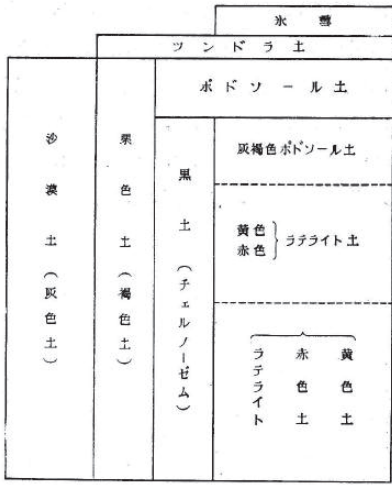 氷雪
ツンドラ土
ポドソール土
沙漠土(灰色土)
栗色土(褐色土)
黒土(チェルノーゼム)
灰褐色ポドソール土
黄色
赤色
ラテライト土
ラテライト
赤色土
黄色土